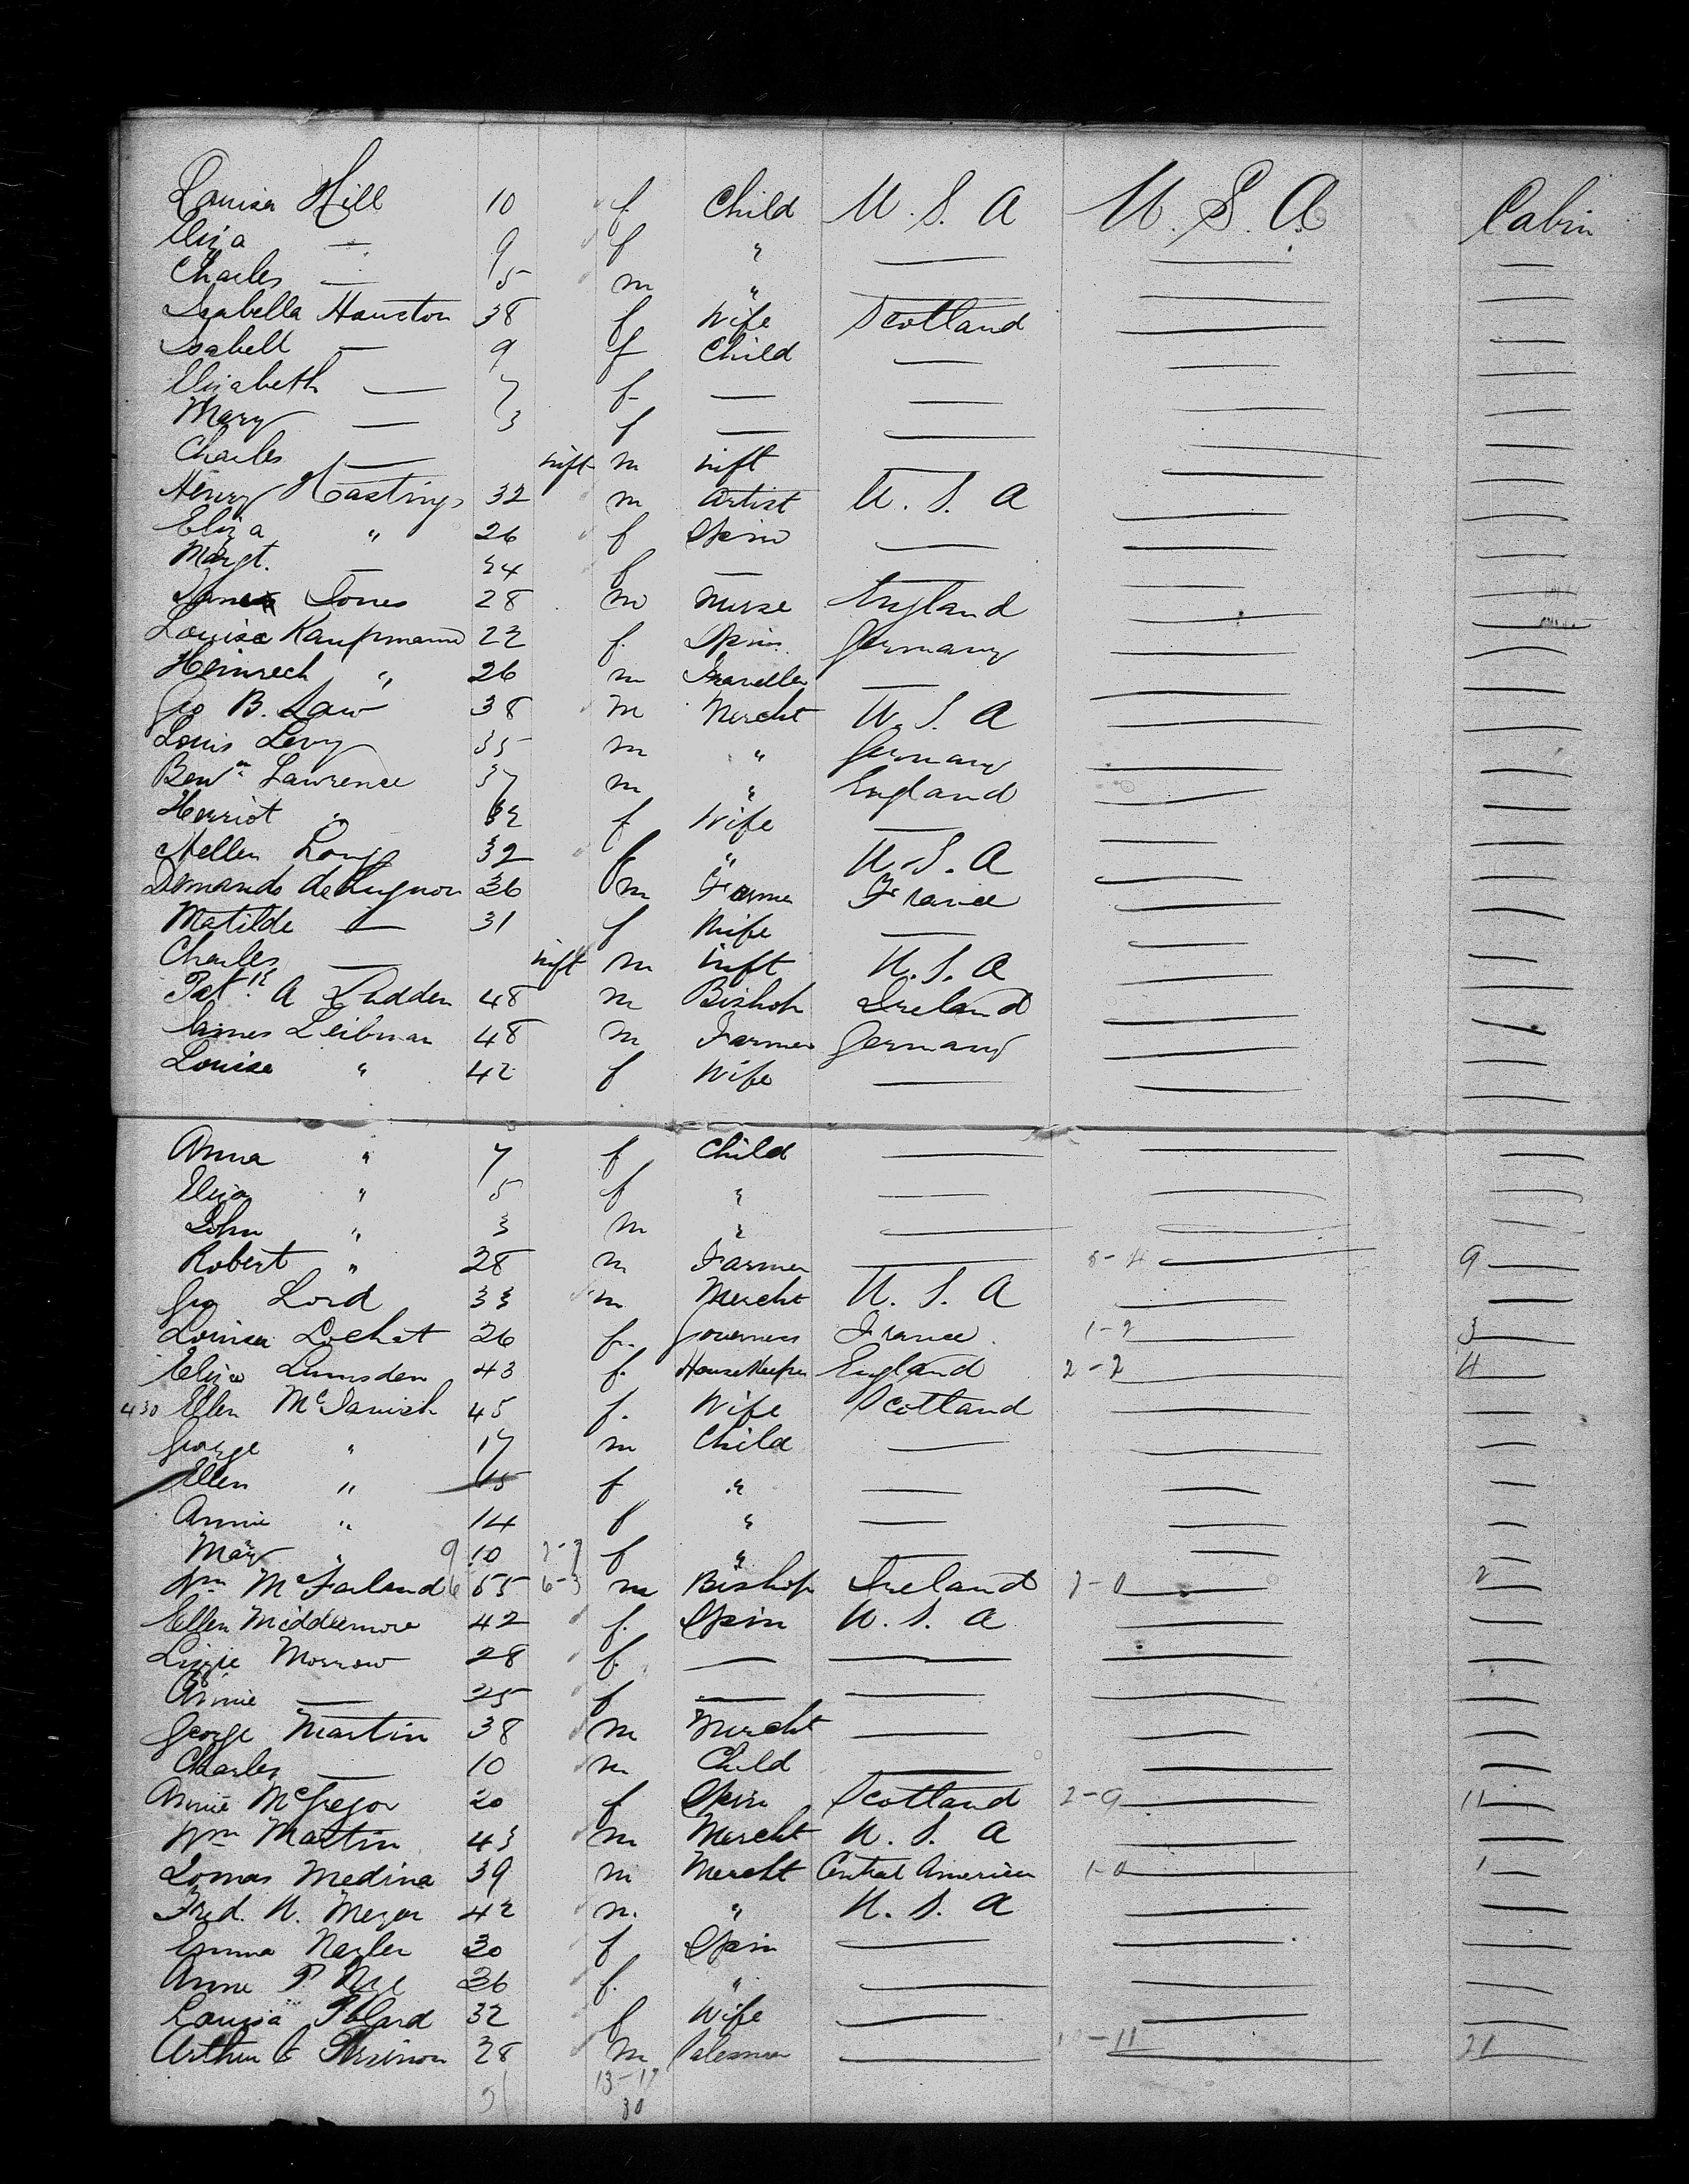 Louisa Hill 10 f. Child U. S. A U. S. A. Cabin
Eliza — 9 f " — — —
Charles — 5 m " — — —
Isabella Houston 38 f Wife Scotland — —
Isabell — 9 f Child — — —
Elizabeth — 7 f — — — —
Mary — 3 f — — — —
Charles — inft m inft — —
Henry Hastings 32 m Artist U. S. A — —
Eliza " 26 f Spin — — —
Margt. — 24 f — — — —
James Jones 28 m Nurse England — —
Louisa Kaufmann 22 f. Spin. Germany — —
Heinrech " 26 m Traveller — — —
Geo B. Law 38 m Mercht U. S. A — —
Louis Levy 35 m " Germany — —
Benn Lawrence 37 m " England — —
Herriot " 32 f Wife — — —
Nellen Long 32 f " U. S. A — —
36 m Farmer France — —
Matilde — 31 f Wife — — —
Charles — inft m inft U. S. A — —
Patk. A Ludden 48 m Bishop Ireland — —
James Leibman 48 m Farmer Germany — —
Louisa " 42 f Wife — — —
Anna " 7 f Child — — —
Eliza " 5 f " — — —
John " 3 m " — — —
Robert " 28 m Farmer — — 9 —
Geo Lord 33 m Mercht U. S. A — —
Louisa Lochat 26 f. Governess France 1-2 — 3 —
Eliza Lumsden 43 f. HouseKeeper England 2-2 — 4 —
430 Ellen McTavish 45 f. Wife Scotland — —
George " 17 m Child — — —
Ellen " 15 f " — — —
Annie " 14 f " — — —
May " 10 f " — — —
Wm McFarland 55 6-3 m Bishop Ireland 2-0 — 2 —
Ellen Middlemore 42 f. Spin U. S. A — —
Lizzie Morrow 28 f. — — — —
Annie — 25 f — — — —
George Martin 38 m Mercht — — —
Charles — 10 m Child — — —
Annie McGregor 20 f Spin Scotland 2-9 — 11 —
Wm Martin 43 m Mercht U. S. A — —
Tomas Medina 39 m Mercht Central America 1-0 — 1 —
Fred. W. Meyer 42 m. " U. S. A — —
Emma Nagler 30 f Spin — — —
Anne P. Nye 26 f. " — — —
Louisa Pollard 32 f Wife — — —
Arthur 28 m Salesman — 11 — 21 —
51 13-17
30